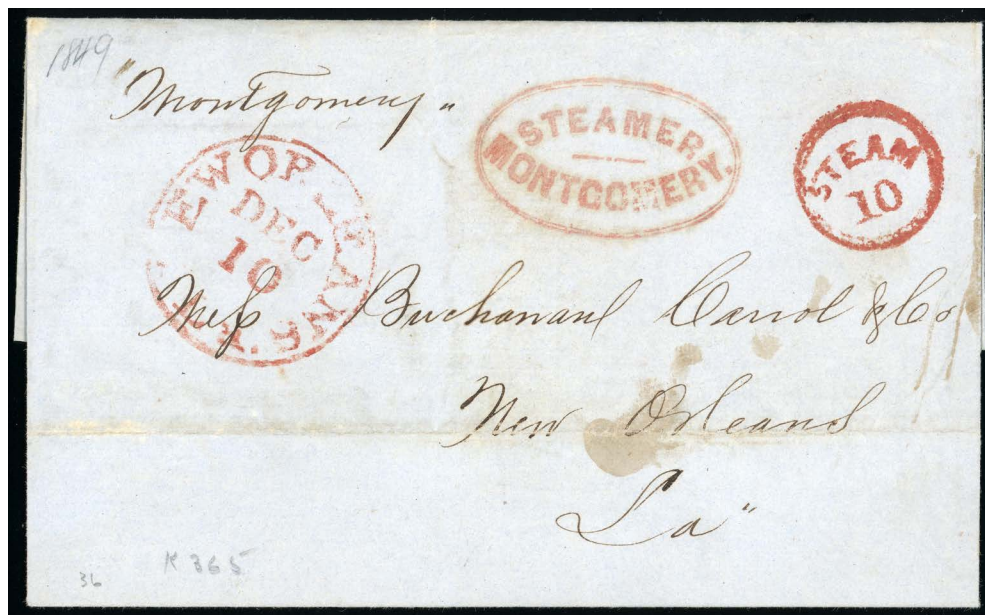 1849
"Montgomery"
STEAMER
MONTGOMERY.
STEAM
10
NEW ORLEANS
DEC
10
LA.
Mess Buchanan Carrol & Co
New Orleans
La"
K 365
36